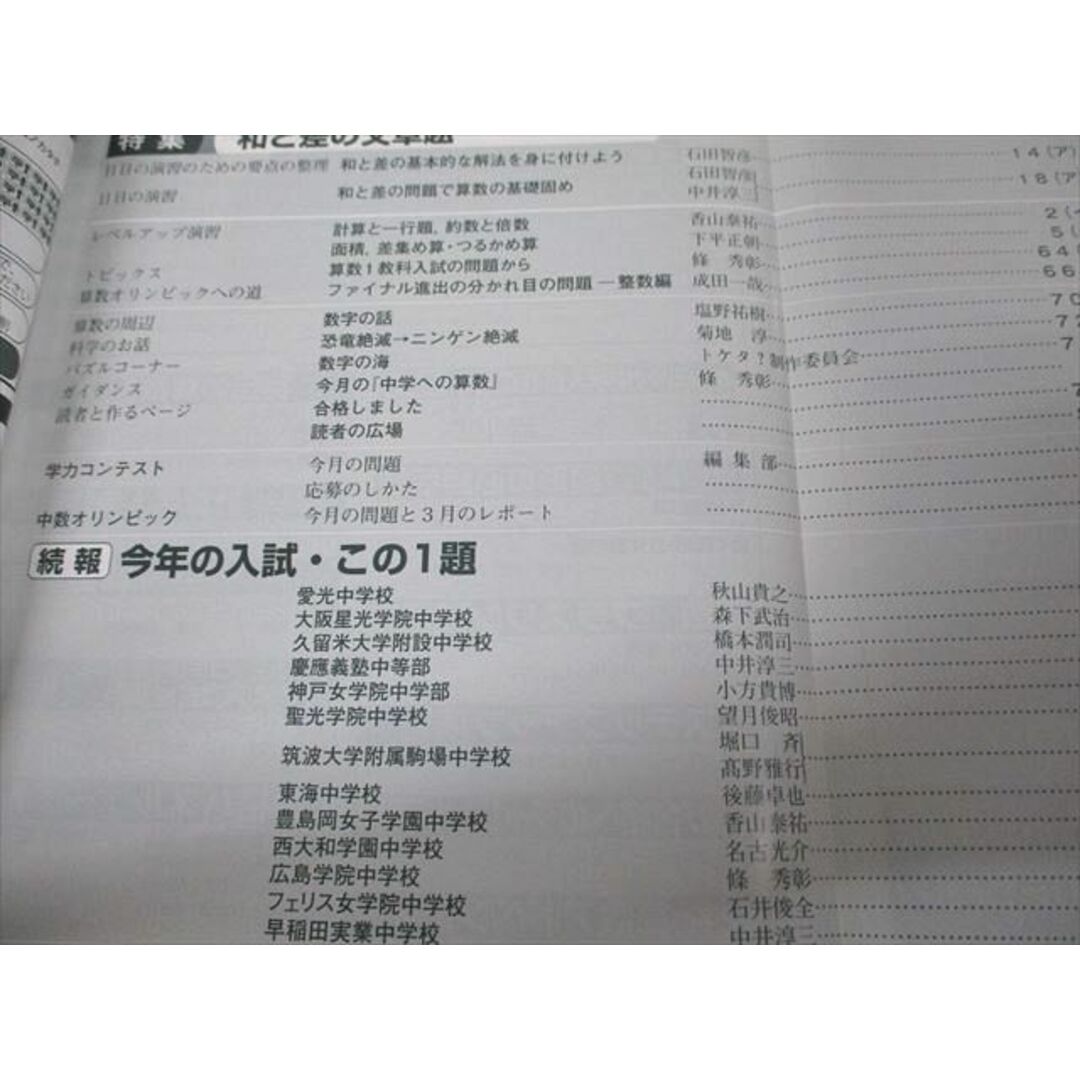 特集 和と差の文章題
日日の演習のための要点の整理 和と差の基本的な解法を身に付けよう 石田智彦 14(ア)
日日の演習 和と差の問題で算数の基礎固め 石田智彦 中井淳三 18(ア
レベルアップ演習 計算と一行題,約数と倍数 香山泰祐 2(イ
面積,差集め算・つるかめ算 下平正朝 5(
トピックス 算数1教科入試の問題から 條 秀彰 64(
算数オリンピックへの道 ファイナル進出の分かれ目の問題―整数編 成田一哉 66
算数の周辺 数字の話 塩野祐樹 70
科学のお話 恐竜絶滅→ニンゲン絶滅 菊地 淳
パズルコーナー 数字の海 トケタ?制作委員会
ガイダンス 今月の『中学への算数』 條 秀彰
読者と作るページ 合格しました
読者の広場
学力コンテスト 今月の問題 編集部
応募のしかた
中数オリンピック 今月の問題と3月のレポート
続報 今年の入試・この1題
愛光中学校 秋山貴之
大阪星光学院中学校 森下武治
久留米大学附設中学校 橋本潤司
慶應義塾中等部 中井淳三
神戸女学院中学部 小方貴博
聖光学院中学校 望月俊昭
筑波大学附属駒場中学校 堀口 斉 髙野雅行
東海中学校 後藤卓也
豊島岡女子学園中学校 香山泰祐
西大和学園中学校 名古光介
広島学院中学校 條 秀彰
フェリス女学院中学校 石井俊全
早稲田実業中学校 中井淳三